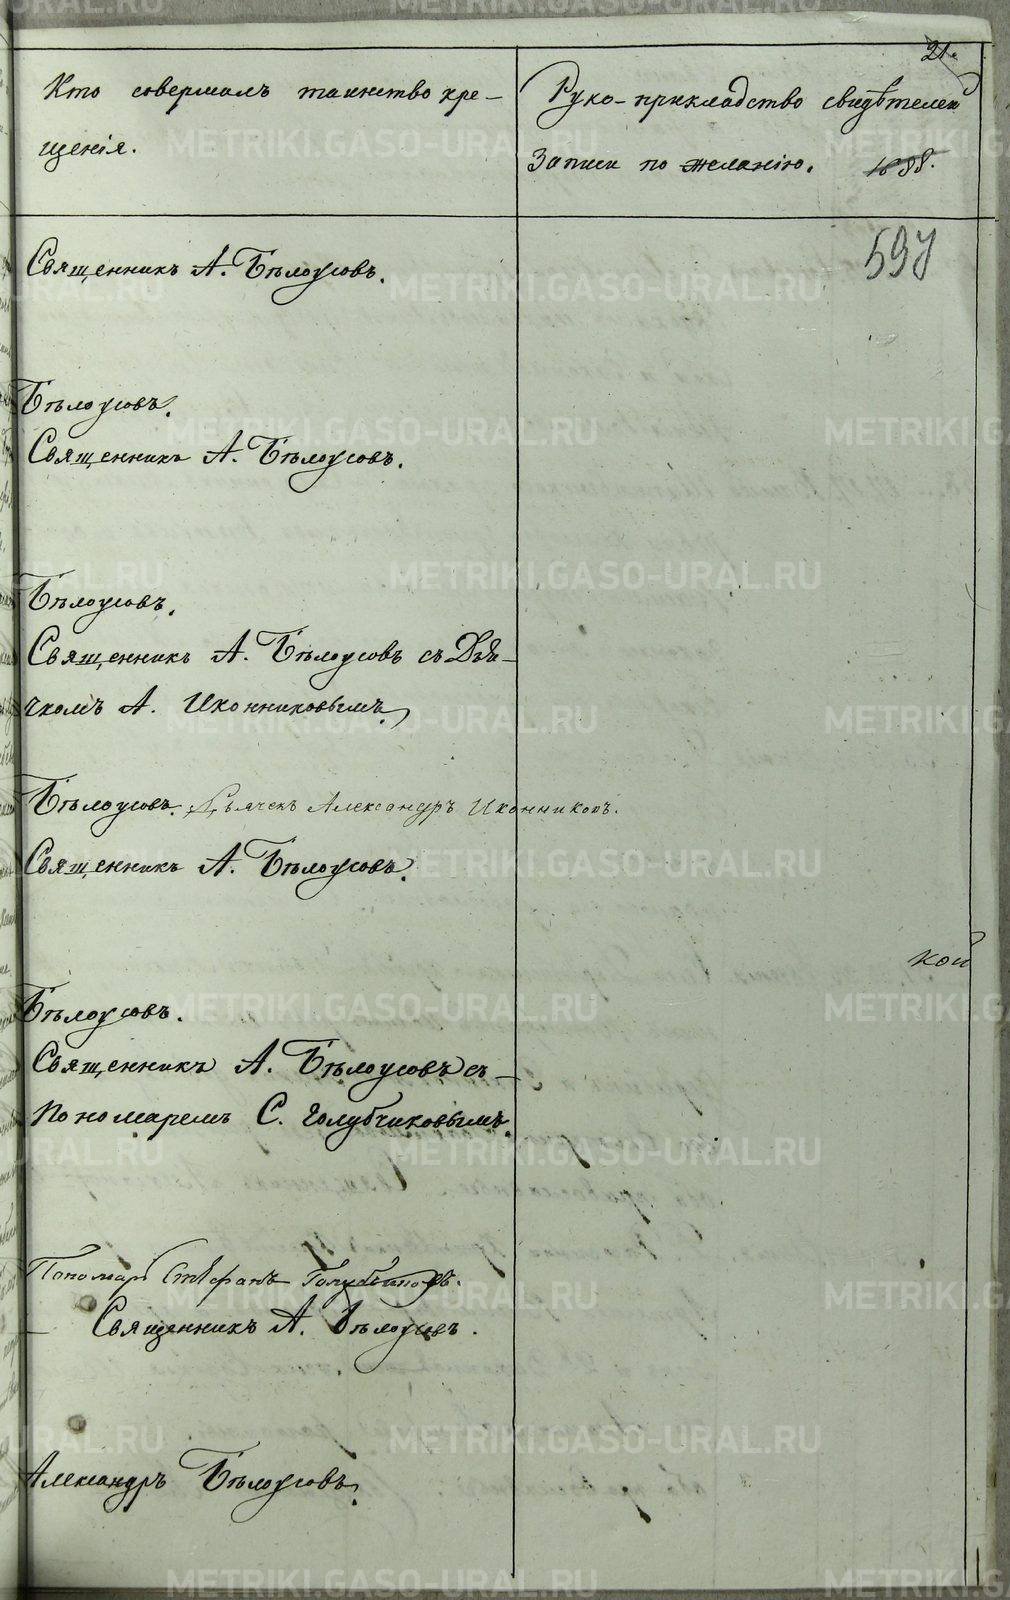 21.
Кто совершалъ таинство кре-
щенія.
Руко-прикладство свидѣтелей
Записи по желанію.
597
Священникъ А. Бѣлоусовъ.
Бѣлоусовъ.
Священникъ А. Бѣлоусовъ.
Бѣлоусовъ.
Священникъ А. Бѣлоусовъ съ Дья-
чкомъ А. Иконниковымъ.
Бѣлоусовъ. Дьячекъ Александръ Иконниковъ.
Священникъ А. Бѣлоусовъ.
кой
Бѣлоусовъ.
Священникъ А. Бѣлоусовъ съ
Пономаремъ С. Голубчиковымъ.
Пономарь Стефанъ Голубчиковъ.
Священникъ А. Бѣлоусовъ.
Александръ Бѣлоусовъ.
METRIKI.GASO-URAL.RU